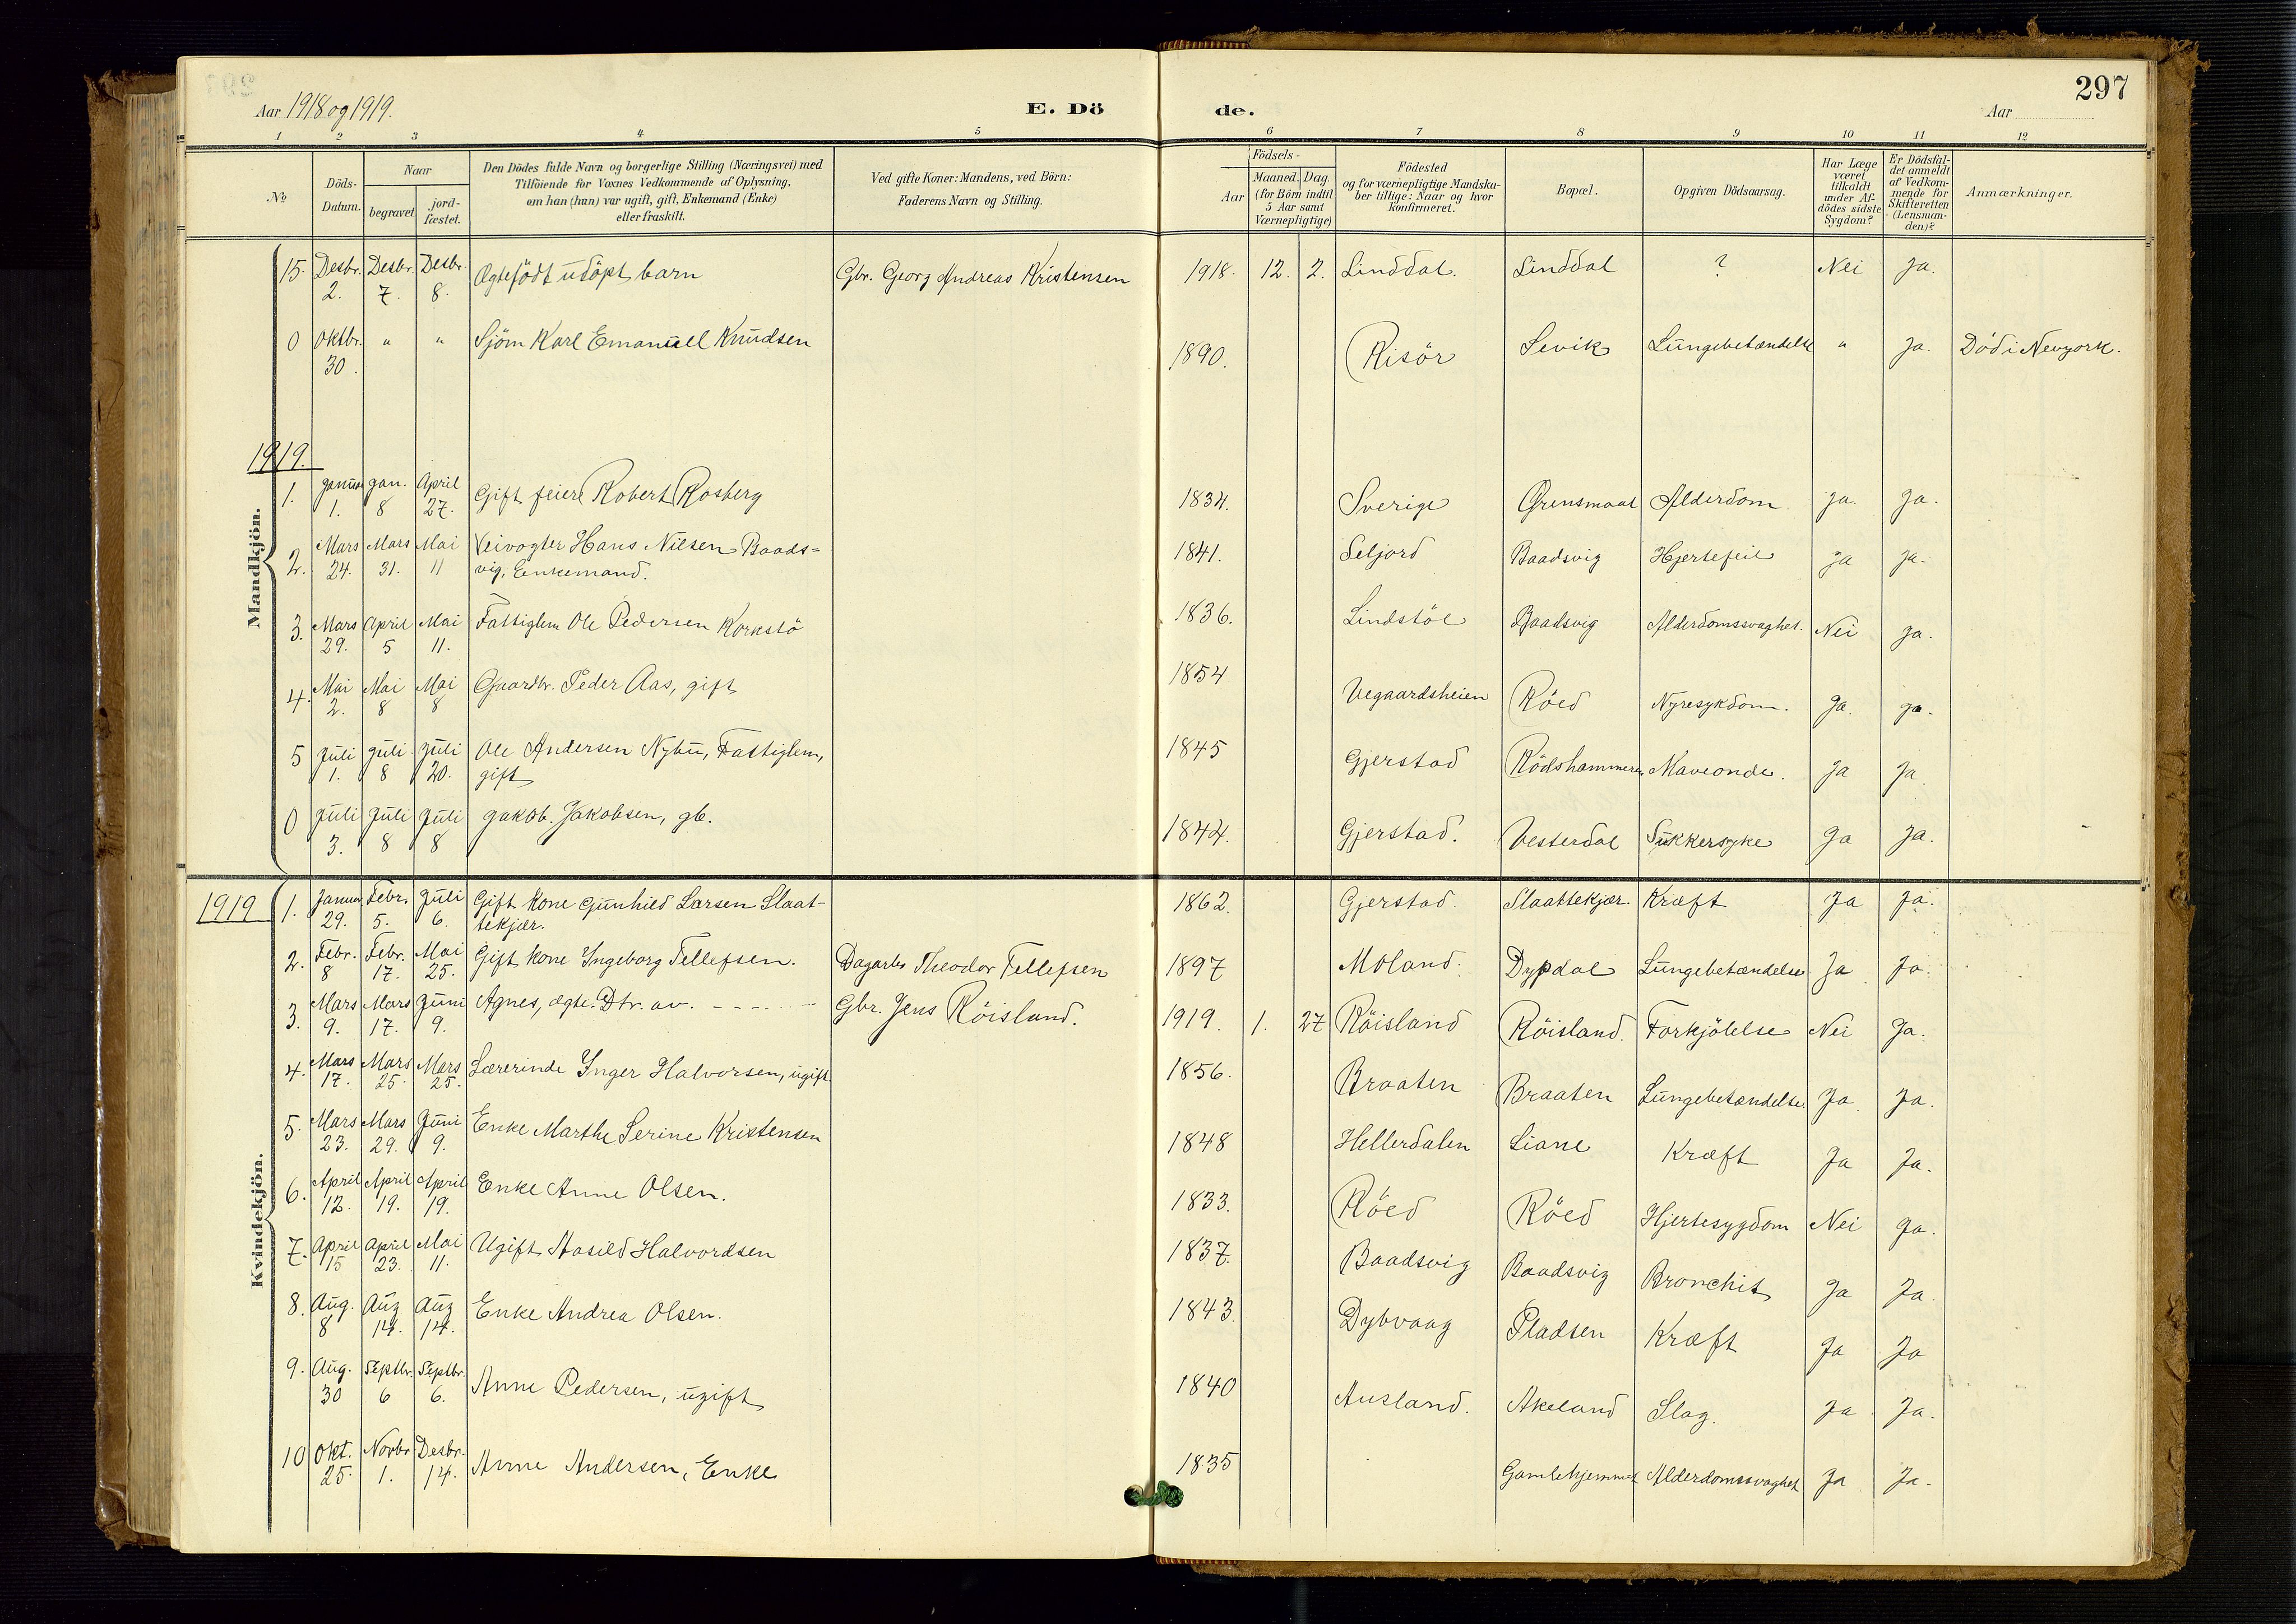 Aar 1918 og 1919.
E. Dö
de.
Aar
297
1 2 3 4 5 6 7 8 9 10 11 12
No
Döds-Datum.
Naar
begravet.
jord-fæstet.
Den Dödes fulde Navn og borgerlige Stilling (Næringsvei) med
Tilföiende for Voxnes Vedkommende af Oplysning,
om han (hun) var ugift, gift, Enkemand (Enke)
eller fraskilt.
Ved gifte Koner: Mandens, ved Börn:
Faderens Navn og Stilling.
Födsels-
Aar
Maaned. Dag.
(for Börn indtil
5 Aar samt
Værnepligtige)
Födested
og for værnepligtige Mandska-
ber tillige: Naar og hvor
konfirmeret.
Bopæl.
Opgiven Dödsaarsag.
Har Læge
været
tilkaldt
under Af-
dödes sidste
Sygdom?
Er Dödsfal-
det anmeldt
af Vedkom-
mende for
Skifteretten
(Lensman-
den)?
Anmærkninger.
15. Desbr. 2. Desbr. 7. Desbr. 8. Ægtefödt udöpt barn Gbr. Georg Andreas Kristensen 1918. 12. 2. Linddal. Linddal ? Nei Ja.
0 Oktbr. 30. " " Sjöm Karl Emanuell Knudsen 1890. Risör Sevik Lungebetændelse " Ja. Död i Newyork.
1919.
Mandkjön.
1. Januar 1. Jan. 8 April 27. Gift feier Robert Rosberg 1834. Sverige Grensmaal Alderdom Ja. Ja.
2. Mars 24. Mars 31. Mai 11 Veivogter Hans Nilsen Baads=
vig, Enkemand. 1841. Seljord Baadsvig Hjertefeil Ja Ja.
3. Mars 29. April 5 Mai 11. Fattiglem Ole Pedersen Korkstö 1836. Lindstöl Baadsvig Alderdomssvaghet. Nei Ja.
4. Mai 2. Mai 8 Mai 8 Gaardbr. Peder Aas, gift 1854 Vegaardsheien Röed Nyresykdom. Ja. Ja.
5 Juli 1. Juli 8 Juli 20. Ole Andersen Nybu, Fattiglem,
gift 1845 Gjerstad Rödshammeren Maveonde. Ja Ja
0 Juli 3. Juli 8 Juli 8 Jakob. Jakobsen, gb. 1844. Gjerstad. Vesterdal Sukkersyke Ja Ja.
1919
Kvindekjön.
1. Januar 29. Febr. 5. Juli 6. Gift kone Gunhild Larsen Slaat-
tekjær. 1862. Gjerstad Slaattekjær. Kræft Ja Ja.
2. Febr. 8 Febr. 17. Mai 25. Gift kone Ingeborg Tellefsen. Dagarb. Theodor Tellefsen 1897 Moland. Dypdal Lungebetændelse Ja Ja.
3. Mars 9. Mars 17. Juni 9. Agnes, ægte. Dtr. av. - - - - Gbr. Jens Röisland. 1919. 1. 27 Röisland Röisland. Forkjölelse Nei Ja.
4. Mars 17. Mars 25. Mars 25. Lærerinde Inger Halvorsen, ugift. 1856. Braaten Braaten Lungebetændelse. Ja Ja.
5. Mars 23. Mars 29. Juni 9. Enke Marthe Serine Kristensen 1848 Hellerdalen Liane Kræft Ja Ja.
6. April 12. April 19. April 19. Enke Anne Olsen. 1833. Röed Röed Hjertesygdom Nei Ja.
7. April 15 April 23. Mai 11. Ugift Aasild Halvordsen 1837. Baadsvig Baadsvig Bronchit Ja Ja.
8. Aug. 8 Aug 14. Aug 14. Enke Andrea Olsen. 1843. Dybvaag Pladsen Kræft Ja Ja
9. Aug. 30 Septbr. 6 Septbr. 6. Anne Pedersen, ugift 1840 Ausland. Akeland Slag. Ja Ja.
10 Okt. 25. Novbr 1. Desbr. 14. Anne Andersen, Enke 1835 Gamlehjemmet Alderdomssvaghet Ja Ja.